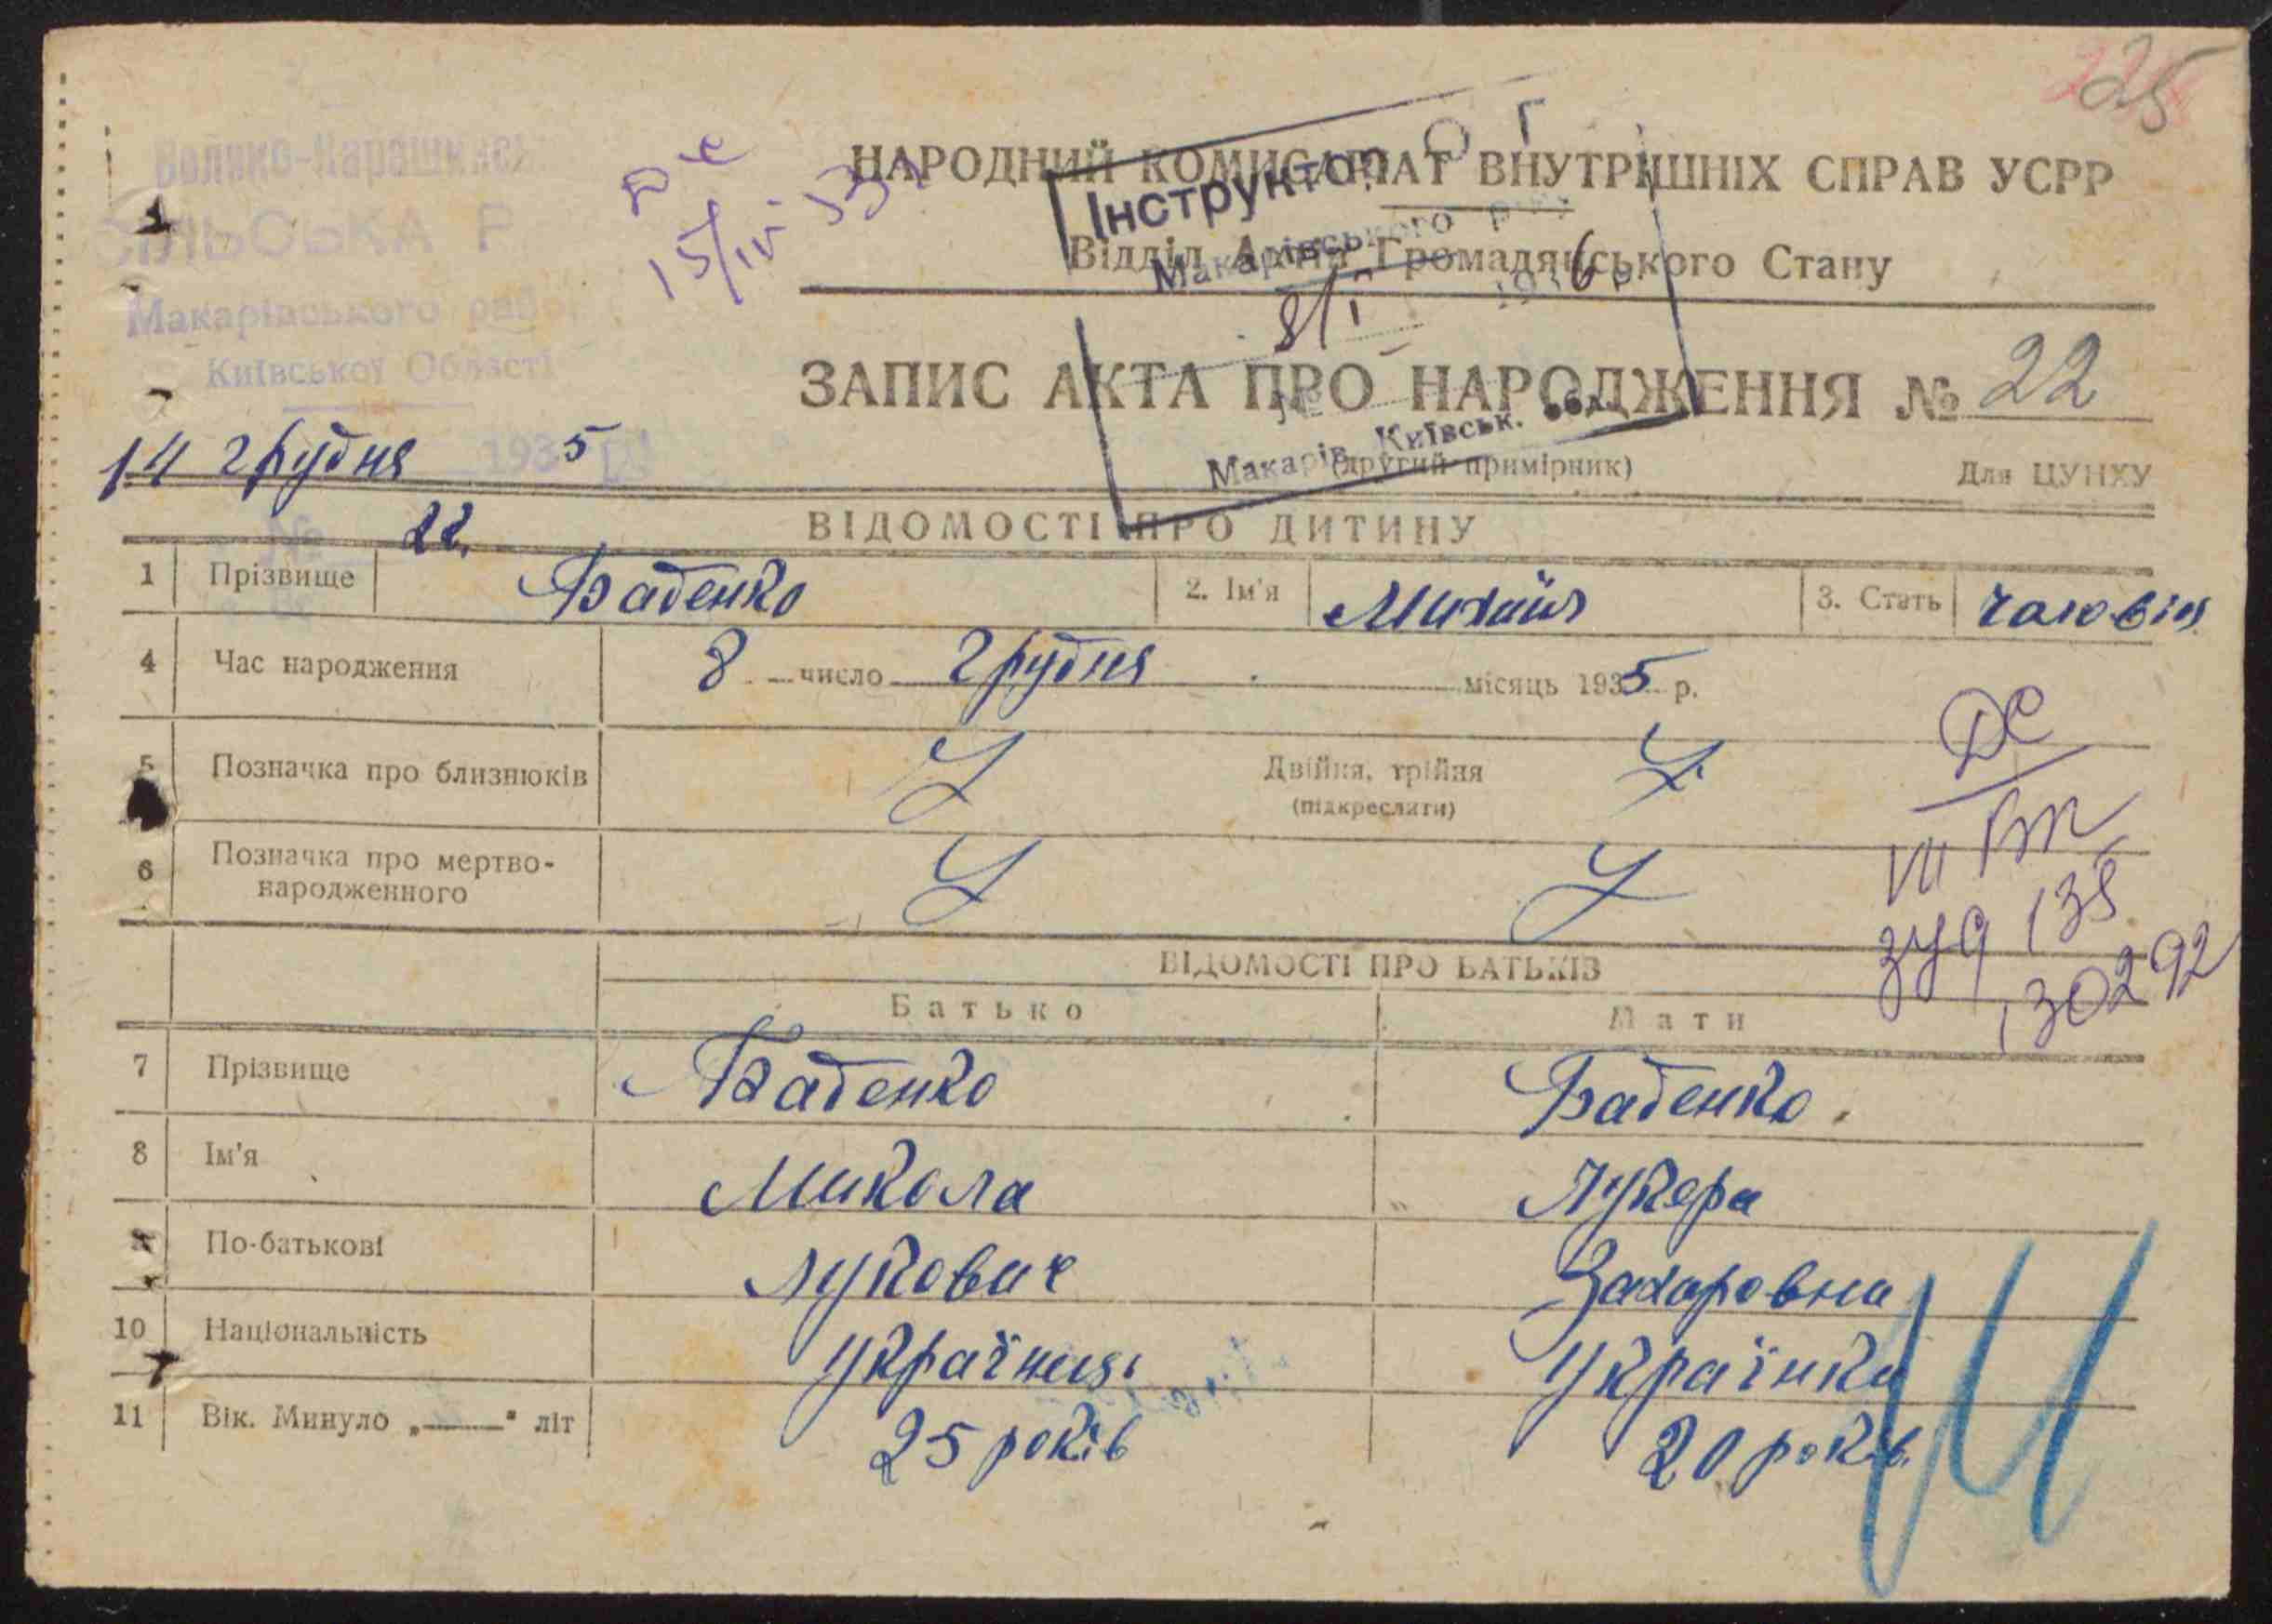 25
Велико-Карашинська
СІЛЬСЬКА Р
Макарівського району
Київської Області
14 грудня 1935
№ 22.
15/IV
НАРОДНИЙ КОМІСАРІАТ ВНУТРІШНІХ СПРАВ УСРР
Відділ Актів Громадянського Стану
Інструктор О Г
Макарівського
8/I 1936 р.
№
Макарів, Київськ. обл.
ЗАПИС АКТА ПРО НАРОДЖЕННЯ № 22
(другий примірник)
Для ЦУНХУ
ВІДОМОСТІ ПРО ДИТИНУ
1 Прізвище Баденко 2. Ім'я Михайл 3. Стать чоловіч
4 Час народження 8 число грудня місяць 1935 р.
5 Позначка про близнюків Двійня, трійня
(підкреслити)
6 Позначка про мертво-
народженного
ДС
VII
138
130292
ВІДОМОСТІ ПРО БАТЬКІВ
Батько Мати
7 Прізвище Баденко Баденко.
8 Ім'я Микола Лукера
9 По-батькові Лукович Захаровна
10 Національність Українець Українка
11 Вік. Минуло „——" літ 25 років 20 років